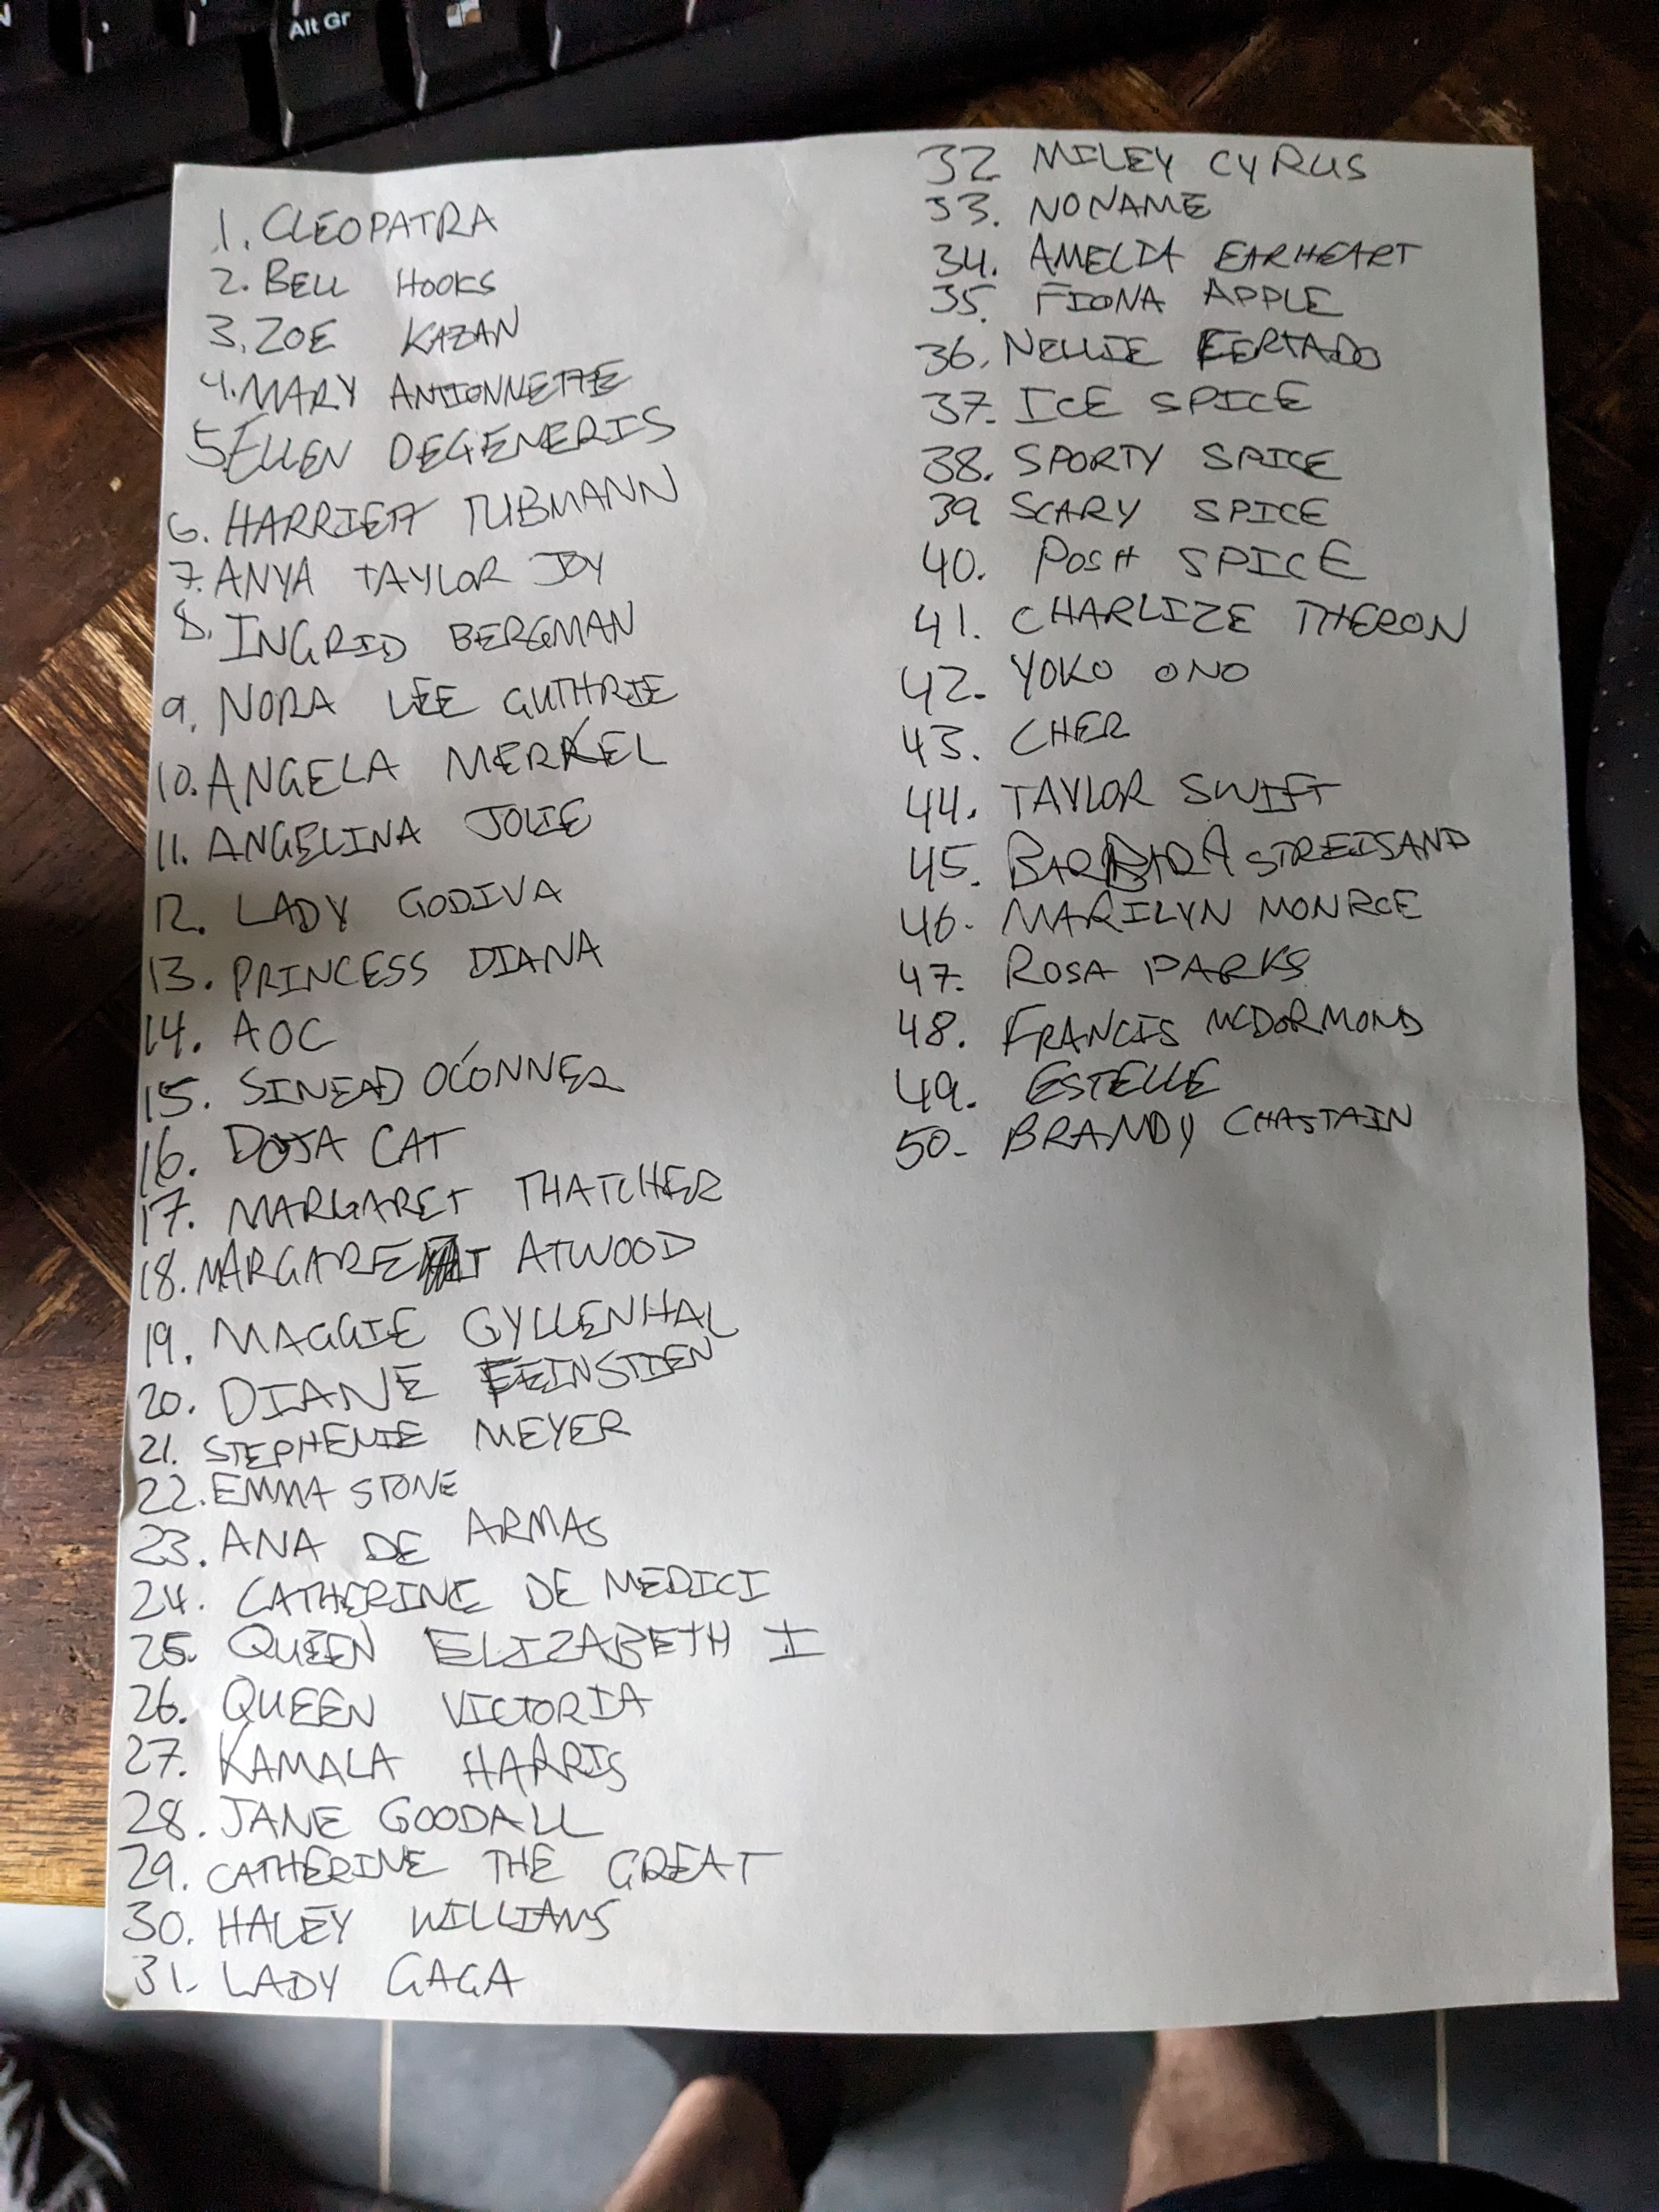 Alt Gr
1. CLEOPATRA
2. BELL HOOKS
3. ZOE KAZAN
4. MARY ANTIONNETTE
5 ELLEN DEGENERIS
6. HARRIETT TUBMANN
7. ANYA TAYLOR JOY
8. INGRID BERGMAN
9. NORA LEE GUTHRIE
10. ANGELA MERKEL
11. ANGELINA JOLIE
12. LADY GODIVA
13. PRINCESS DIANA
14. AOC
15. SINEAD O'CONNER
16. DOJA CAT
17. MARGARET THATCHER
18. MARGARET ATWOOD
19. MAGGIE GYLLENHAL
20. DIANE FEINSTIEN
21. STEPHENIE MEYER
22. EMMA STONE
23. ANA DE ARMAS
24. CATHERINE DE MEDICI
25. QUEEN ELIZABETH I
26. QUEEN VICTORIA
27. KAMALA HARRIS
28. JANE GOODALL
29. CATHERINE THE GREAT
30. HALEY WILLIAMS
31. LADY GAGA
32 MILEY CYRUS
33. NONAME
34. AMELIA EARHEART
35. FIONA APPLE
36. NELLIE FERTADO
37. ICE SPICE
38. SPORTY SPICE
39 SCARY SPICE
40. POSH SPICE
41. CHARLIZE THERON
42. YOKO ONO
43. CHER
44. TAYLOR SWIFT
45. BARBARA STREISAND
46. MARILYN MONROE
47. ROSA PARKS
48. FRANCIS MCDORMOND
49. ESTELLE
50. BRANDY CHASTAIN